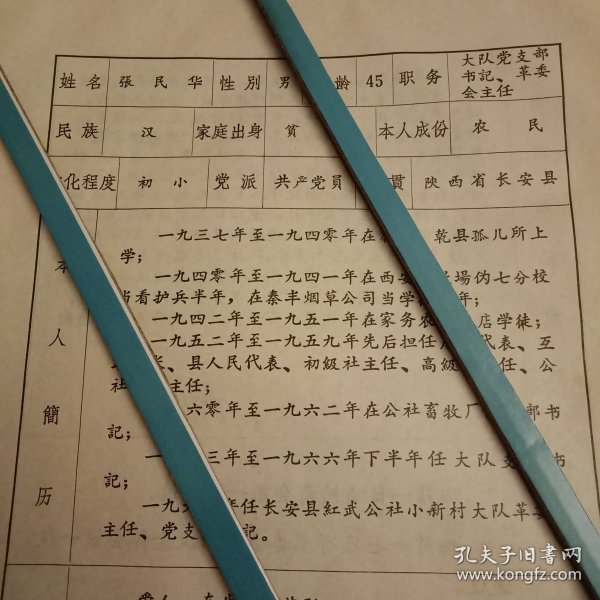 姓名 張民华 性别 男 龄 45 职务 大队党支部
书記、革委
会主任
民族 汉 家庭出身 貧 本人成份 农民
化程度 初小 党派 共产党員 貫 陝西省长安县
本人簡历
一九三七年至一九四零年在 乾县孤儿所上
学；
一九四零年至一九四一年在西安 場伪七分校
当看护兵半年，在秦丰烟草公司当学 年；
一九四二年至一九五一年在家务农 店学徒；
一九五二年至一九五九年先后担任 代表、互
长、县人民代表、初級社主任、高級 任、公
社 主任；
六零年至一九六二年在公社畜牧厂 部书
記；
一 三年至一九六六年下半年任大队支 书
記；
一九六 年任长安县紅武公社小新村大队革委
主任、党支 記。
孔夫子旧书网
www.kongfz.com